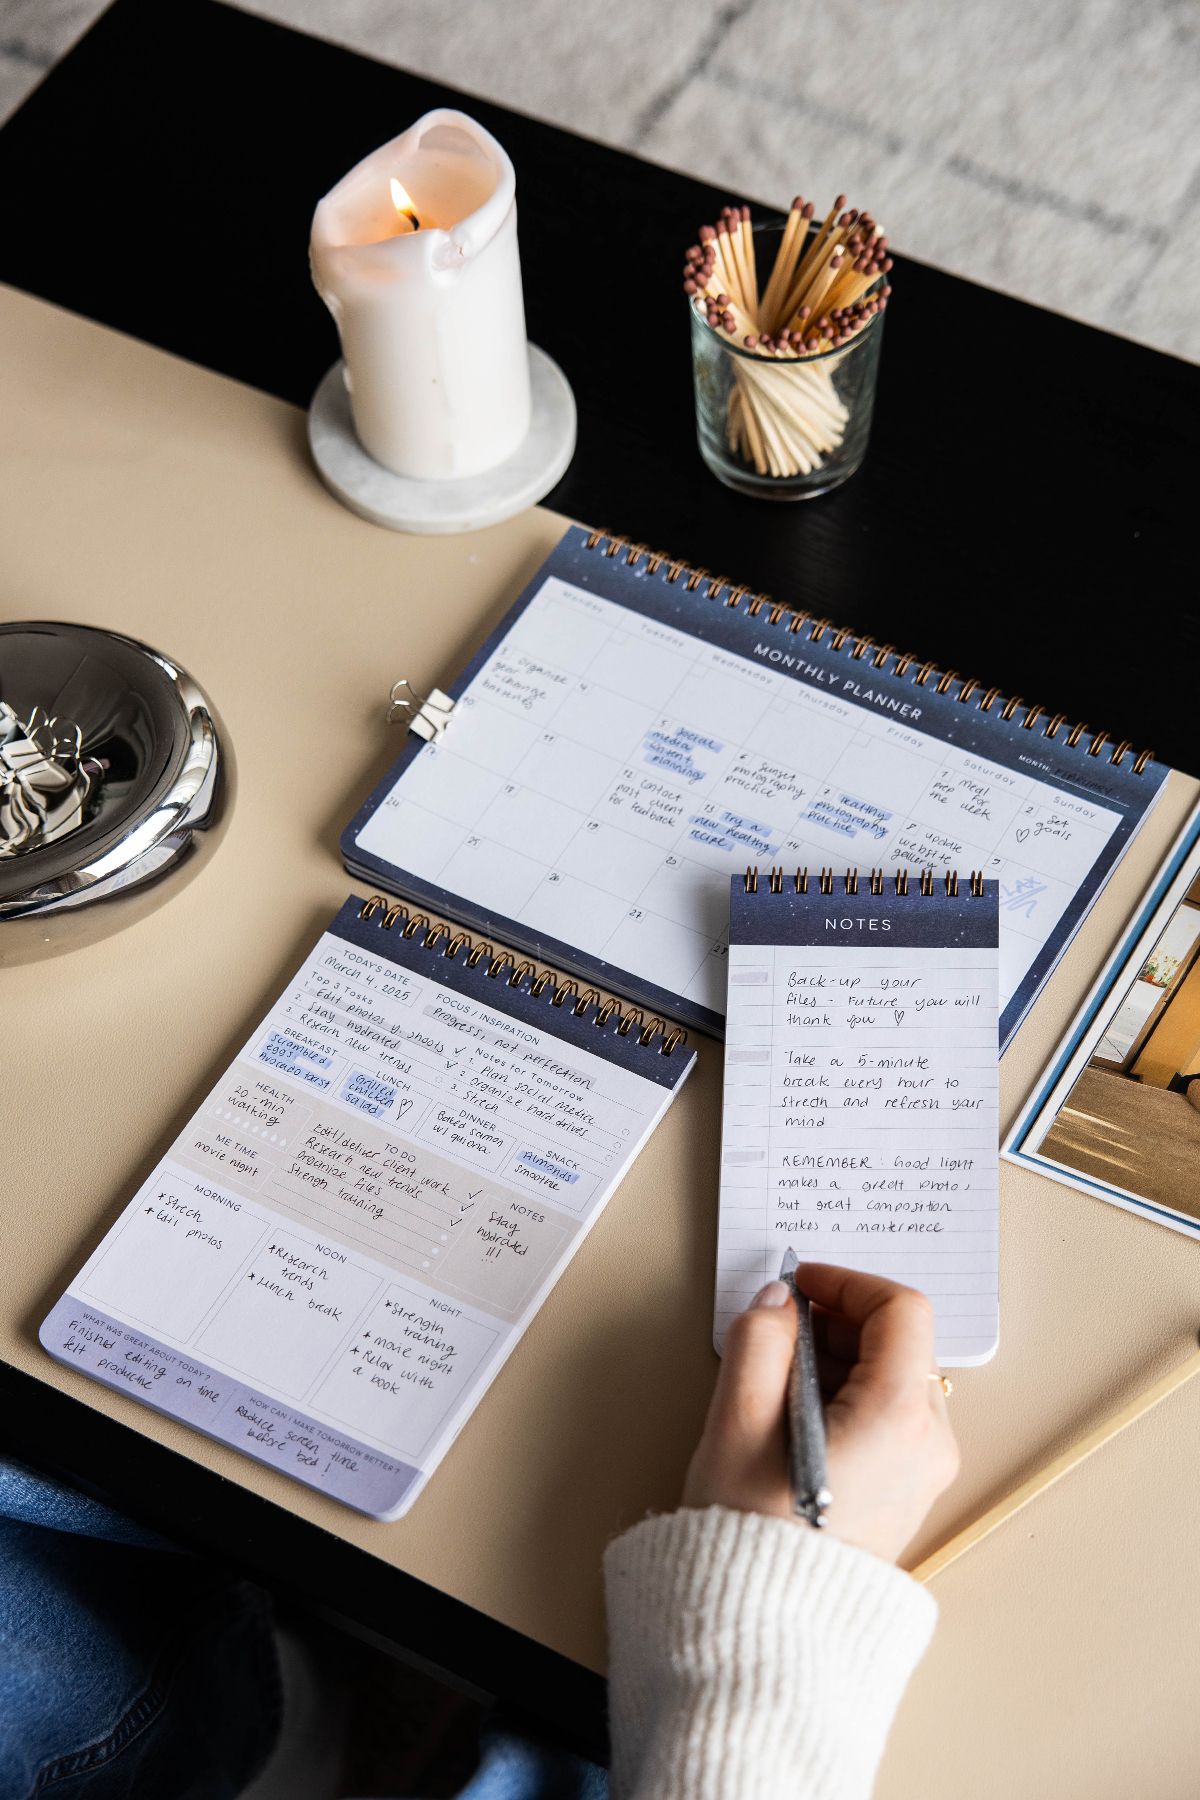 MONTHLY PLANNER
MONTH: FEBRUARY
Monday
Tuesday
Wednesday
Thursday
Friday
Saturday
Sunday
1 meal
prep for
the week
2 set
goals
3 organize
gear - change
batteries
4
5 social
media
content
planning
6 sunset
photography
practice
7 Healthy
photography
practice
8 update
website
gallery
9
10
11
12 contact
past client
for feedback
13 Try a
new healthy
recipe
14
17
18
19
20
24
25
26
27
NOTES
Back-up your
files - Future you will
thank you ♡
Take a 5-minute
break every hour to
strecth and refresh your
mind
REMEMBER: Good light
makes a great photo,
but great composition
makes a masterpiece
TODAY'S DATE
March 4, 2025
FOCUS / INSPIRATION
Progress, not perfection
Top 3 Tasks
1. Edit photos
2. Stay hydrated
3. Research new trends
Notes for Tomorrow
1. Plan social media
2. Organize hard drives
3. Strech
BREAKFAST
scrambled
eggs
avocado toast
LUNCH
Grilled
chicken
salad
DINNER
Baked salmon
w/ quiona
SNACK
Almonds
smoothie
HEALTH
20-min
walking
ME TIME
movie night
TO DO
Edit/deliver client work
Research new trends
Organize files
Strength training
NOTES
Stay
hydrated
!!!
MORNING
*Strech
*Edit photos
NOON
*Research
trends
*Lunch break
NIGHT
*Strength
training
*movie night
*Relax with
a book
WHAT WAS GREAT ABOUT TODAY?
Finished editing on time
felt productive
HOW CAN I MAKE TOMORROW BETTER?
Reduce screen time
before bed!